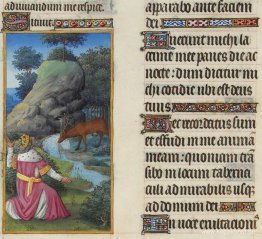 ad iuuandum me respice.
apparabo ante faciem
dei
Fuerunt michi la
crime mee panes die ac
nocte: dum dicitur mi
chi cotidie ubi est deus
tuus
Hec recordatus sum
et effudi in me animam
meam: quoniam transi
bo in locum taberna
culi admirabilis usq
ad domum dei
In uoce exultacionis